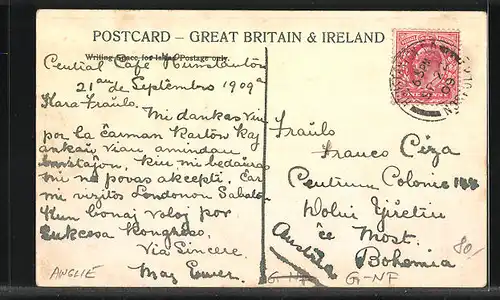 POSTCARD – GREAT BRITAIN & IRELAND
Writing Space for Inland Postage only.
Central Café Wolverhampton
21an de Septembro 1909a
Kara Fraŭlo.
Mi dankas vin
por la ĉarman karton kaj
ankaŭ vian amindan
invitajon, kiu mi bedaŭras
mi ne povas akcepti, ĉar
mi vizitos Londonon Sabaton
Kun bonaj voloj por
sukcesa Kongreso,
Via Sincere.
May
Fraŭlo
Franco
Centrum Colonie
Dolni
ĉe Most.
Bohemia
Austria
80/-
ANGLIE
G-NF